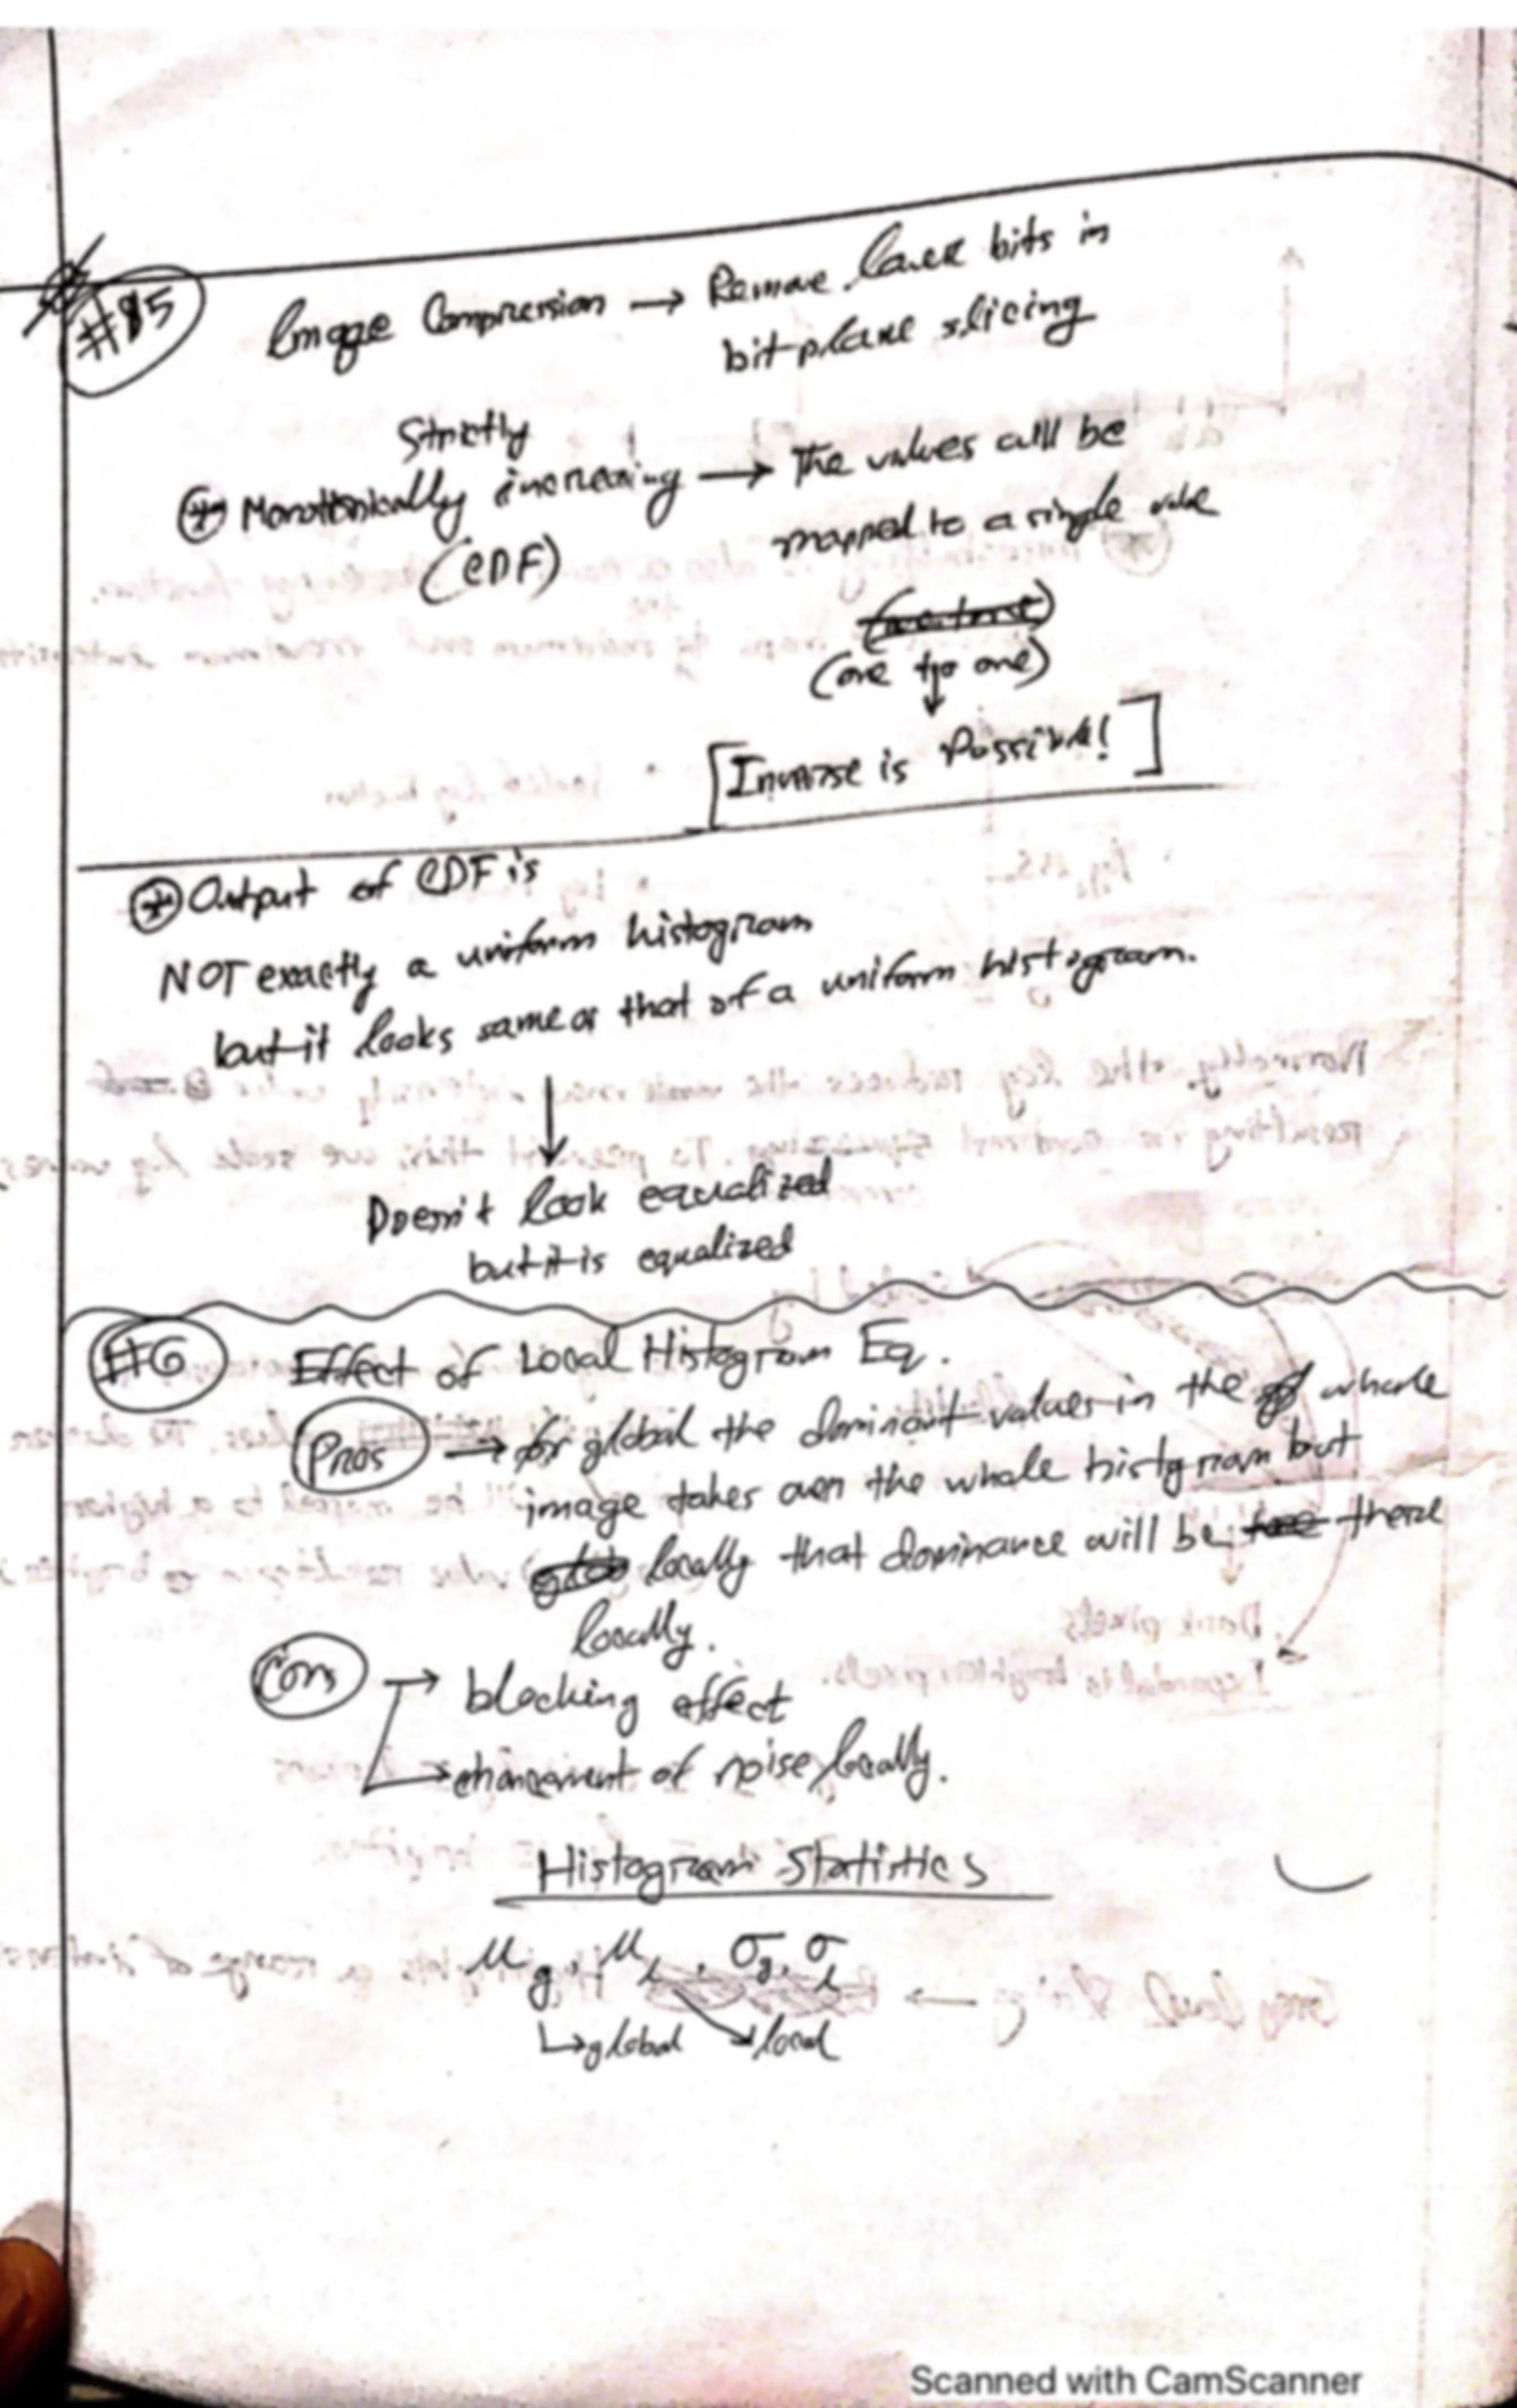 #5
Image Compression → Remove lower bits in
bit plane slicing
Strictly
⊛ Monotonically increasing → The values will be
(CDF)
mapped to a single value
(one to one)
↓
[Inverse is Possible!]
⊛ Output of CDF is
NOT exactly a uniform histogram
but it looks same as that of a uniform histogram.
↓
Doesn't look equalized
but it is equalized
#6
Effect of Local Histogram Eq.
Pros → for global the dominant values in the whole
image takes over the whole histogram but
locally that dominance will be there
locally.
Cons → blocking effect
→ enhancement of noise locally.
Histogram Statistics
μg, μl, σg, σl
↳ global ↘ local
Scanned with CamScanner